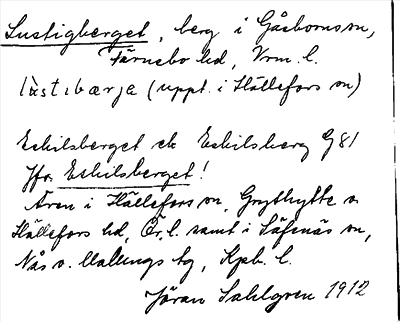 Lustigberget, berg i Gåsborns sn,
Färnebo hd, Vrm. l.
lùstıbærja (uppt. i Hällefors sn)
Eskilsberget ek Eskilsberg G81
Jfr. Eskilsberget!
Även i Hällefors sn, Grythytte o.
Hällefors hd, Ör. l. samt i Säfsnäs sn,
Nås o. Malungs tg, Kpb. l.
Jöran Sahlgren 1912